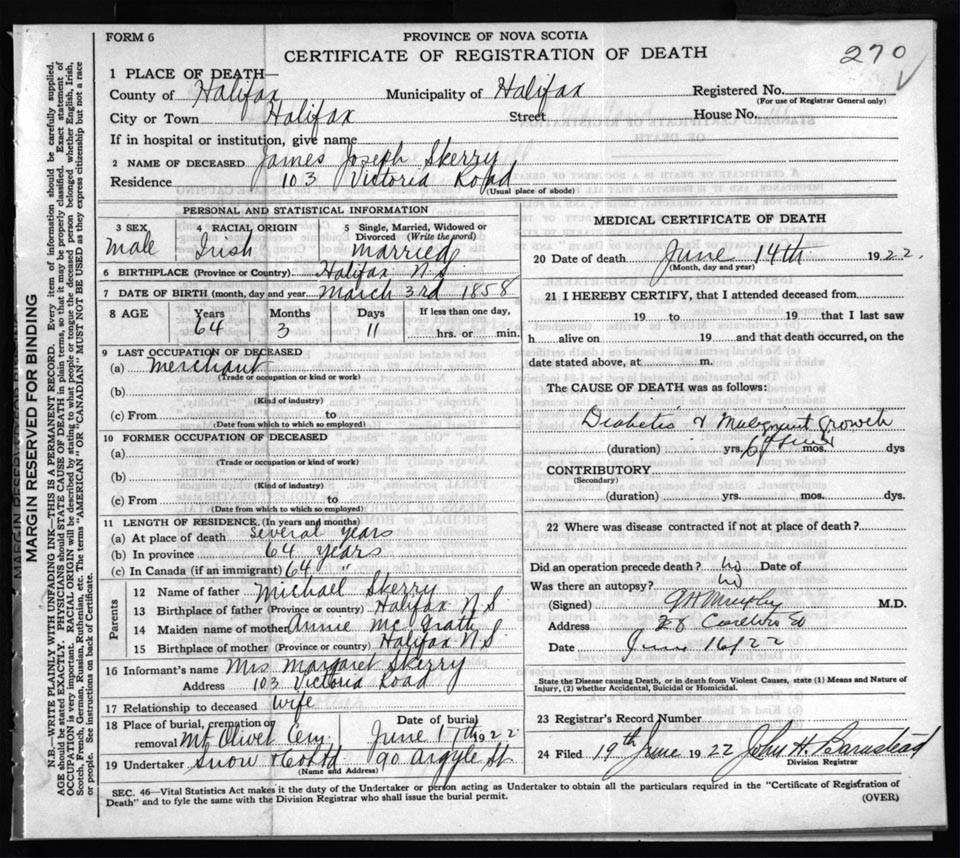 FORM 6
PROVINCE OF NOVA SCOTIA
CERTIFICATE OF REGISTRATION OF DEATH
270
1 PLACE OF DEATH—
County of Halifax Municipality of Halifax Registered No.
(For use of Registrar General only)
City or Town Halifax Street House No.
If in hospital or institution, give name
2 NAME OF DECEASED James Joseph Skerry
Residence 103 Victoria Road
(Usual place of abode)
PERSONAL AND STATISTICAL INFORMATION
3 SEX 4 RACIAL ORIGIN 5 Single, Married, Widowed or Divorced (Write the word)
Male Irish Married
6 BIRTHPLACE (Province or Country) Halifax N.S.
7 DATE OF BIRTH (month, day and year March 3rd 1858
8 AGE Years Months Days If less than one day,
64 3 11 hrs. or min.
9 LAST OCCUPATION OF DECEASED
(a) Merchant
(Trade or occupation or kind or work)
(b)
(Kind of industry)
(c) From to
(Date from which to which so employed)
10 FORMER OCCUPATION OF DECEASED
(a)
(Trade or occupation or kind of work)
(b)
(Kind of industry)
(c) From to
(Date from which to which so employed)
11 LENGTH OF RESIDENCE. (In years and months)
(a) At place of death several years
(b) In province 64 years
(c) In Canada (if an immigrant) 64 "
Parents
12 Name of father Michael Skerry
13 Birthplace of father (Province or country) Halifax N S
14 Maiden name of mother Annie McGrath
15 Birthplace of mother (Province or country) Halifax N.S
16 Informant's name Mrs Margaret Skerry
Address 103 Victoria Road
17 Relationship to deceased wife
18 Place of burial, cremation or removal Mt Olivet Cem Date of burial June 17th 1922
19 Undertaker Snow & Co Ltd 90 Argyle St
(Name and Address)
MEDICAL CERTIFICATE OF DEATH
20 Date of death June 14th 1922.
(Month, day and year)
21 I HEREBY CERTIFY, that I attended deceased from
19 to 19 that I last saw
h alive on 19 and that death occurred, on the
date stated above, at m.
The CAUSE OF DEATH was as follows:
Diabetis & Malignant growth
(duration) yrs. mos. dys
CONTRIBUTORY
(Secondary)
(duration) yrs. mos. dys.
22 Where was disease contracted if not at place of death?
Did an operation precede death? No Date of
Was there an autopsy? No
(Signed) G H Murphy M.D.
Address 28 Carleton St
Date June 16/22
State the Disease causing Death, or in death from Violent Causes, state (1) Means and Nature of
Injury, (2) whether Accidental, Suicidal or Homicidal.
23 Registrar's Record Number
24 Filed 19th June 1922 John H. Barnstead
Division Registrar
SEC. 46—Vital Statistics Act makes it the duty of the Undertaker or person acting as Undertaker to obtain all the particulars required in the "Certificate of Registration of
Death" and to fyle the same with the Division Registrar who shall issue the burial permit.
(OVER)
MARGIN RESERVED FOR BINDING
N.B.—WRITE PLAINLY WITH UNFADING INK—THIS IS A PERMANENT RECORD. Every item of information should be carefully supplied.
AGE should be stated EXACTLY. PHYSICIANS should STATE CAUSE OF DEATH in plain terms, so that it may be properly classified. Exact statement of
OCCUPATION is very important. RACIAL ORIGIN will be described by stating to what people or tongue the deceased person belonged whether English, Irish,
Scotch, French, German, Russian, Ruthenian, etc. The terms "AMERICAN" OR "CANADIAN" MUST NOT BE USED as they express citizenship but not a race
or people. See instructions on back of Certificate.